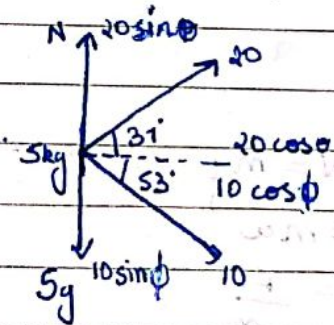 N 20sinθ
20
37°
5kg 20 cosθ
53° 10 cosϕ
5g 10sinϕ 10